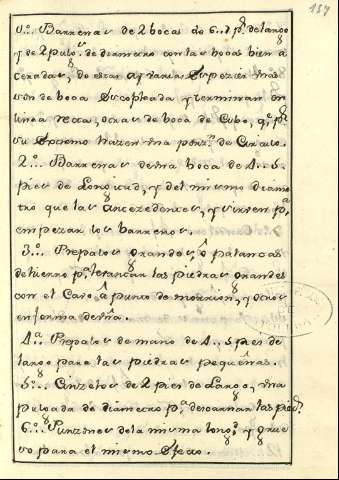 137
1.º Barrenas de 2 bocas de 6..7 p.s de largo
y de 2 pulg.s de diametro con las bocas bien a
ceradas, de estas ay varias Especies unas
son de boca Escopleada, y terminan en
linea recta, otras de boca de Cubo, q.e p.r
su Extremo hazen una porz.n de Circulo.
2.º Barrenas de una boca de 4..5.
pies de Longitud, y del mismo diame
tro que las antecedentes, y sirven p.a
empezar los barrenos.
3.º Prepalos grandes, ô palancas
de hierro p.a levantar las piedras grandes
con el Cavo â punto de morrion, y otros
en forma de uña.
4.ª Prepalos de mano de 4..5 pies de
largo para las piedras pequeñas.
5.º Cinzeles de 2 pies de Largo, una
pulgada de diametro p.a descarnar las pied.s
6.º Punzones de la misma long.d y grue
so para el mismo Efecto.